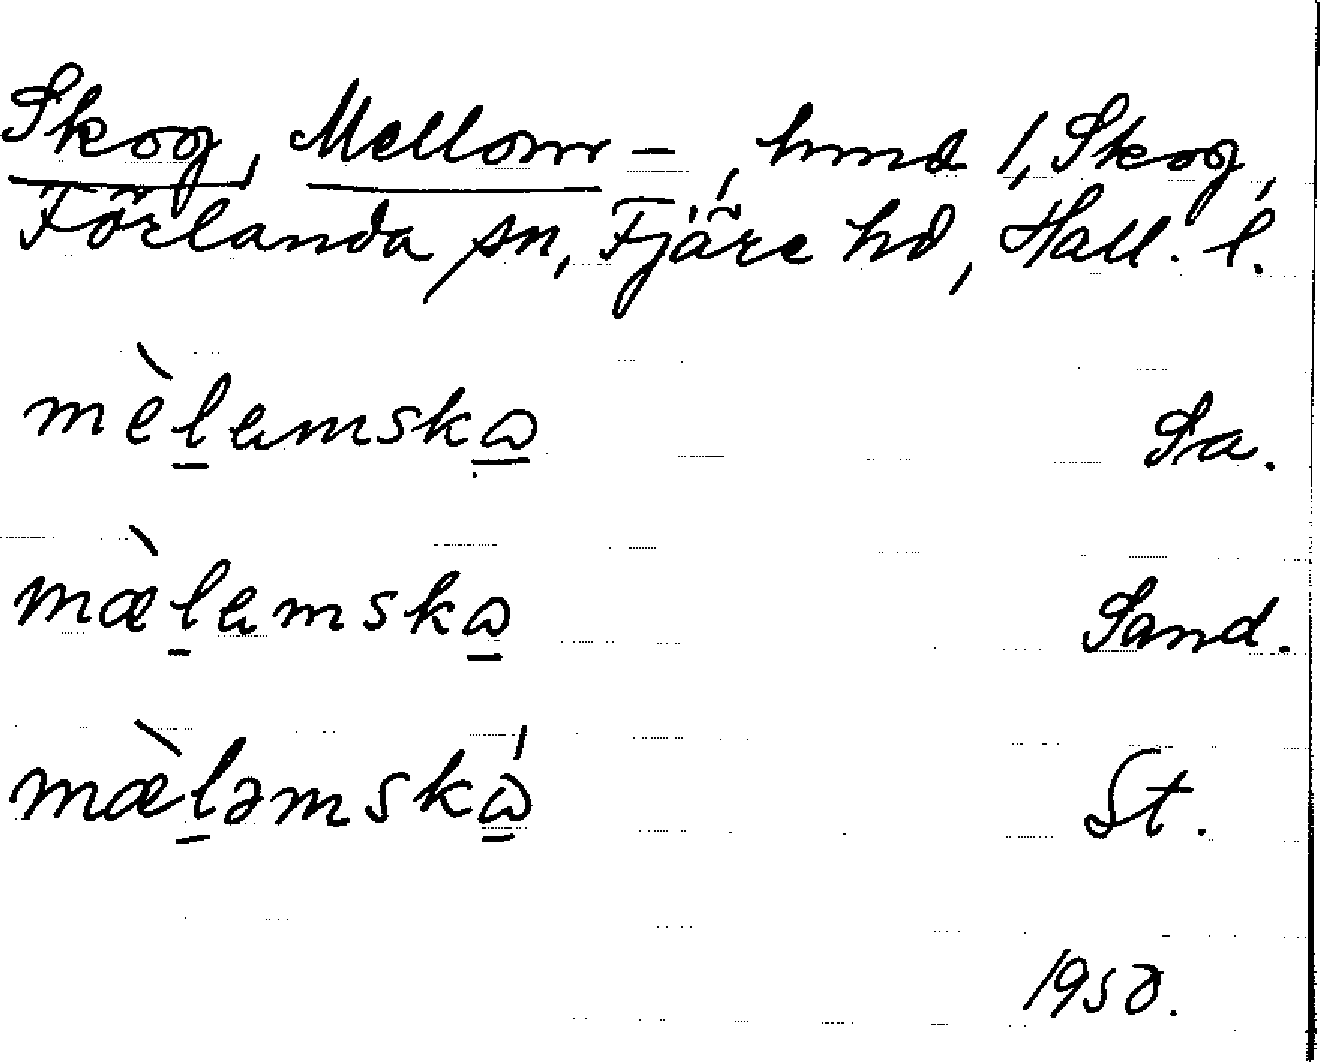 Skog, Mellom-, hmd 1, Skog,
Förlanda sn, Fjäre hd, Hall. l.
mèlamskɷ Sa.
mæ̀lamskɷ Sand.
mæ̀ləmskɷ́ St.
1950.